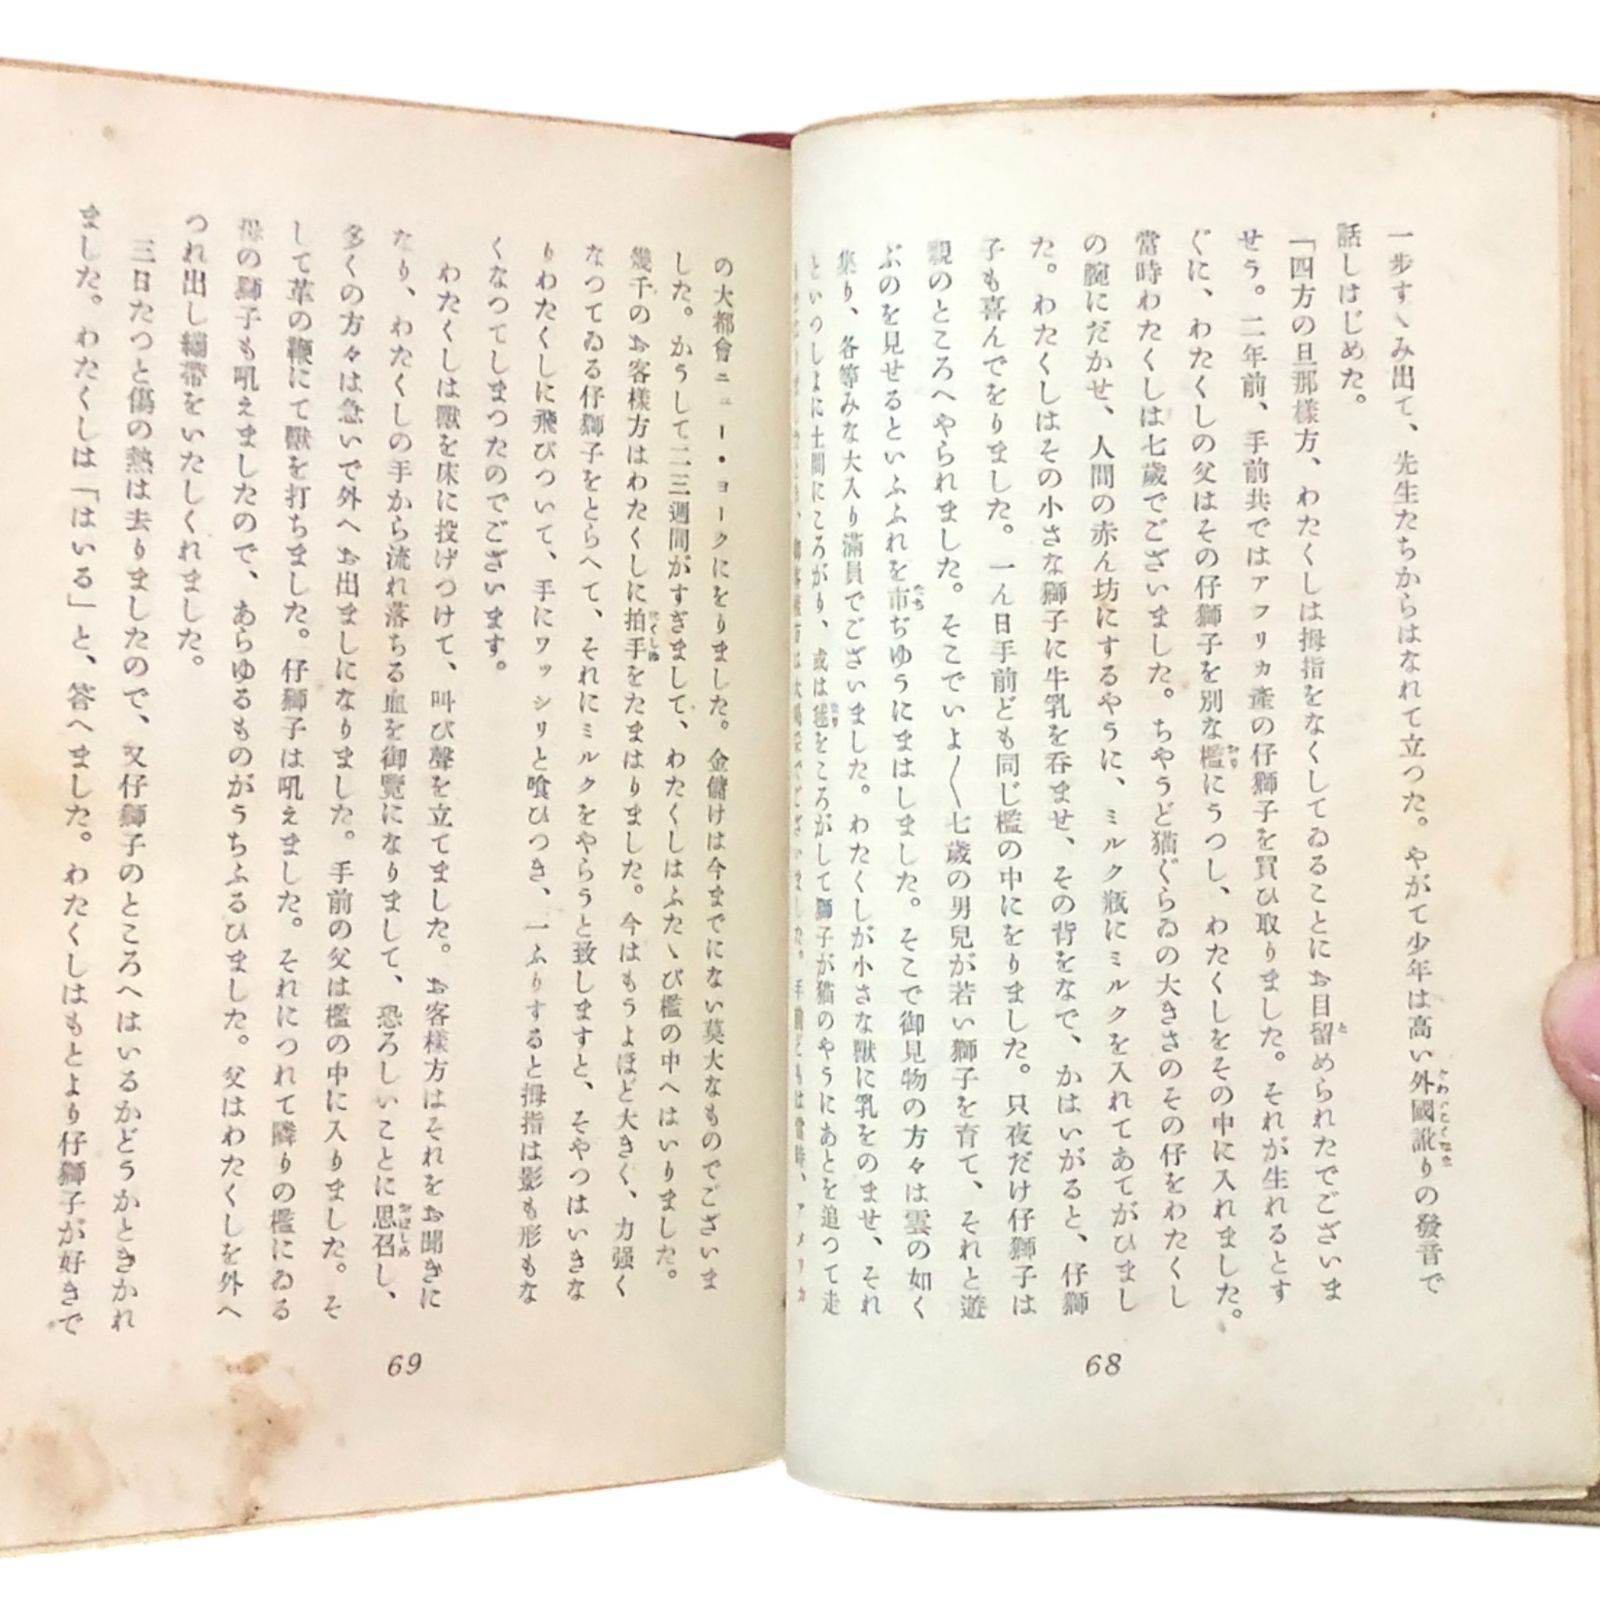 一步すゝみ出て、先生たちからはなれて立つた。やがて少年は高い外國訛りの發音で
話しはじめた。
「四方の旦那樣方、わたくしは拇指をなくしてゐることにお目留められたでございま
せう。二年前、手前共ではアフリカ產の仔獅子を買ひ取りました。それが生れるとす
ぐに、わたくしの父はその仔獅子を別な檻にうつし、わたくしをその中に入れました。
當時わたくしは七歲でございました。ちやうど猫ぐらゐの大きさのその仔をわたくし
の腕にだかせ、人間の赤ん坊にするやうに、ミルク瓶にミルクを入れてあてがひまし
た。わたくしはその小さな獅子に牛乳を呑ませ、その背をなで、かはいがると、仔獅
子も喜んでをりました。一ん日手前ども同じ檻の中にをりました。只夜だけ仔獅子は
親のところへやられました。そこでいよ〳〵七歲の男兒が若い獅子を育て、それと遊
ぶのを見せるといふふれを市ぢゆうにまはしました。そこで御見物の方々は雲の如く
集り、各等みな大入り滿員でございました。わたくしが小さな獸に乳をのませ、それ
といつしよに土間にころがり、或は毬をころがして獅子が猫のやうにあとを追つて走
手前どもは當時、アメリカ
68
の大都會ニユー・ヨークにをりました。金儲けは今までにない莫大なものでございま
した。かうして二三週間がすぎまして、わたくしはふたゝび檻の中へはいりました。
幾千のお客樣方はわたくしに拍手をたまはりました。今はもうよほど大きく、力强く
なつてゐる仔獅子をとらへて、それにミルクをやらうと致しますと、そやつはいきな
りわたくしに飛びついて、手にワッシリと喰ひつき、一ふりすると拇指は影も形もな
くなつてしまつたのでございます。
わたくしは獸を床に投げつけて、叫び聲を立てました。お客樣方はそれをお聞きに
なり、わたくしの手から流れ落ちる血を御覽になりまして、恐ろしいことに思召し、
多くの方々は急いで外へお出ましになりました。手前の父は檻の中に入りました。そ
して革の鞭にて獸を打ちました。仔獅子は吼えました。それにつれて隣りの檻にゐる
母の獅子も吼えましたので、あらゆるものがうちふるひました。父はわたくしを外へ
つれ出し繃帶をいたしくれました。
三日たつと傷の熱は去りましたので、又仔獅子のところへはいるかどうかときかれ
ました。わたくしは「はいる」と、答へました。わたくしはもとより仔獅子が好きで
69